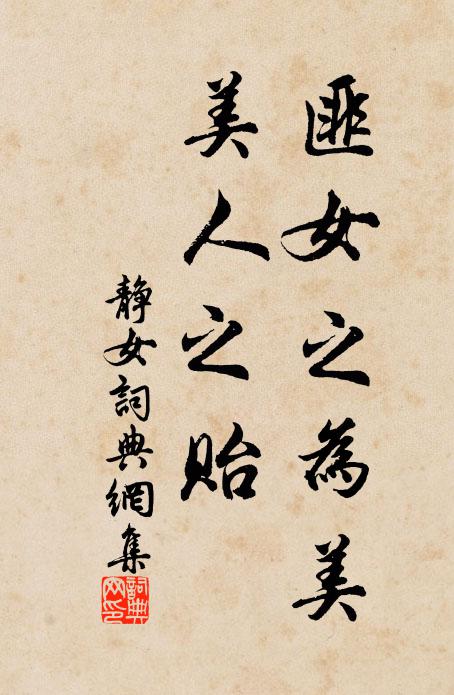 匪女之為美
美人之貽
靜女詞典網集
詞典
网印